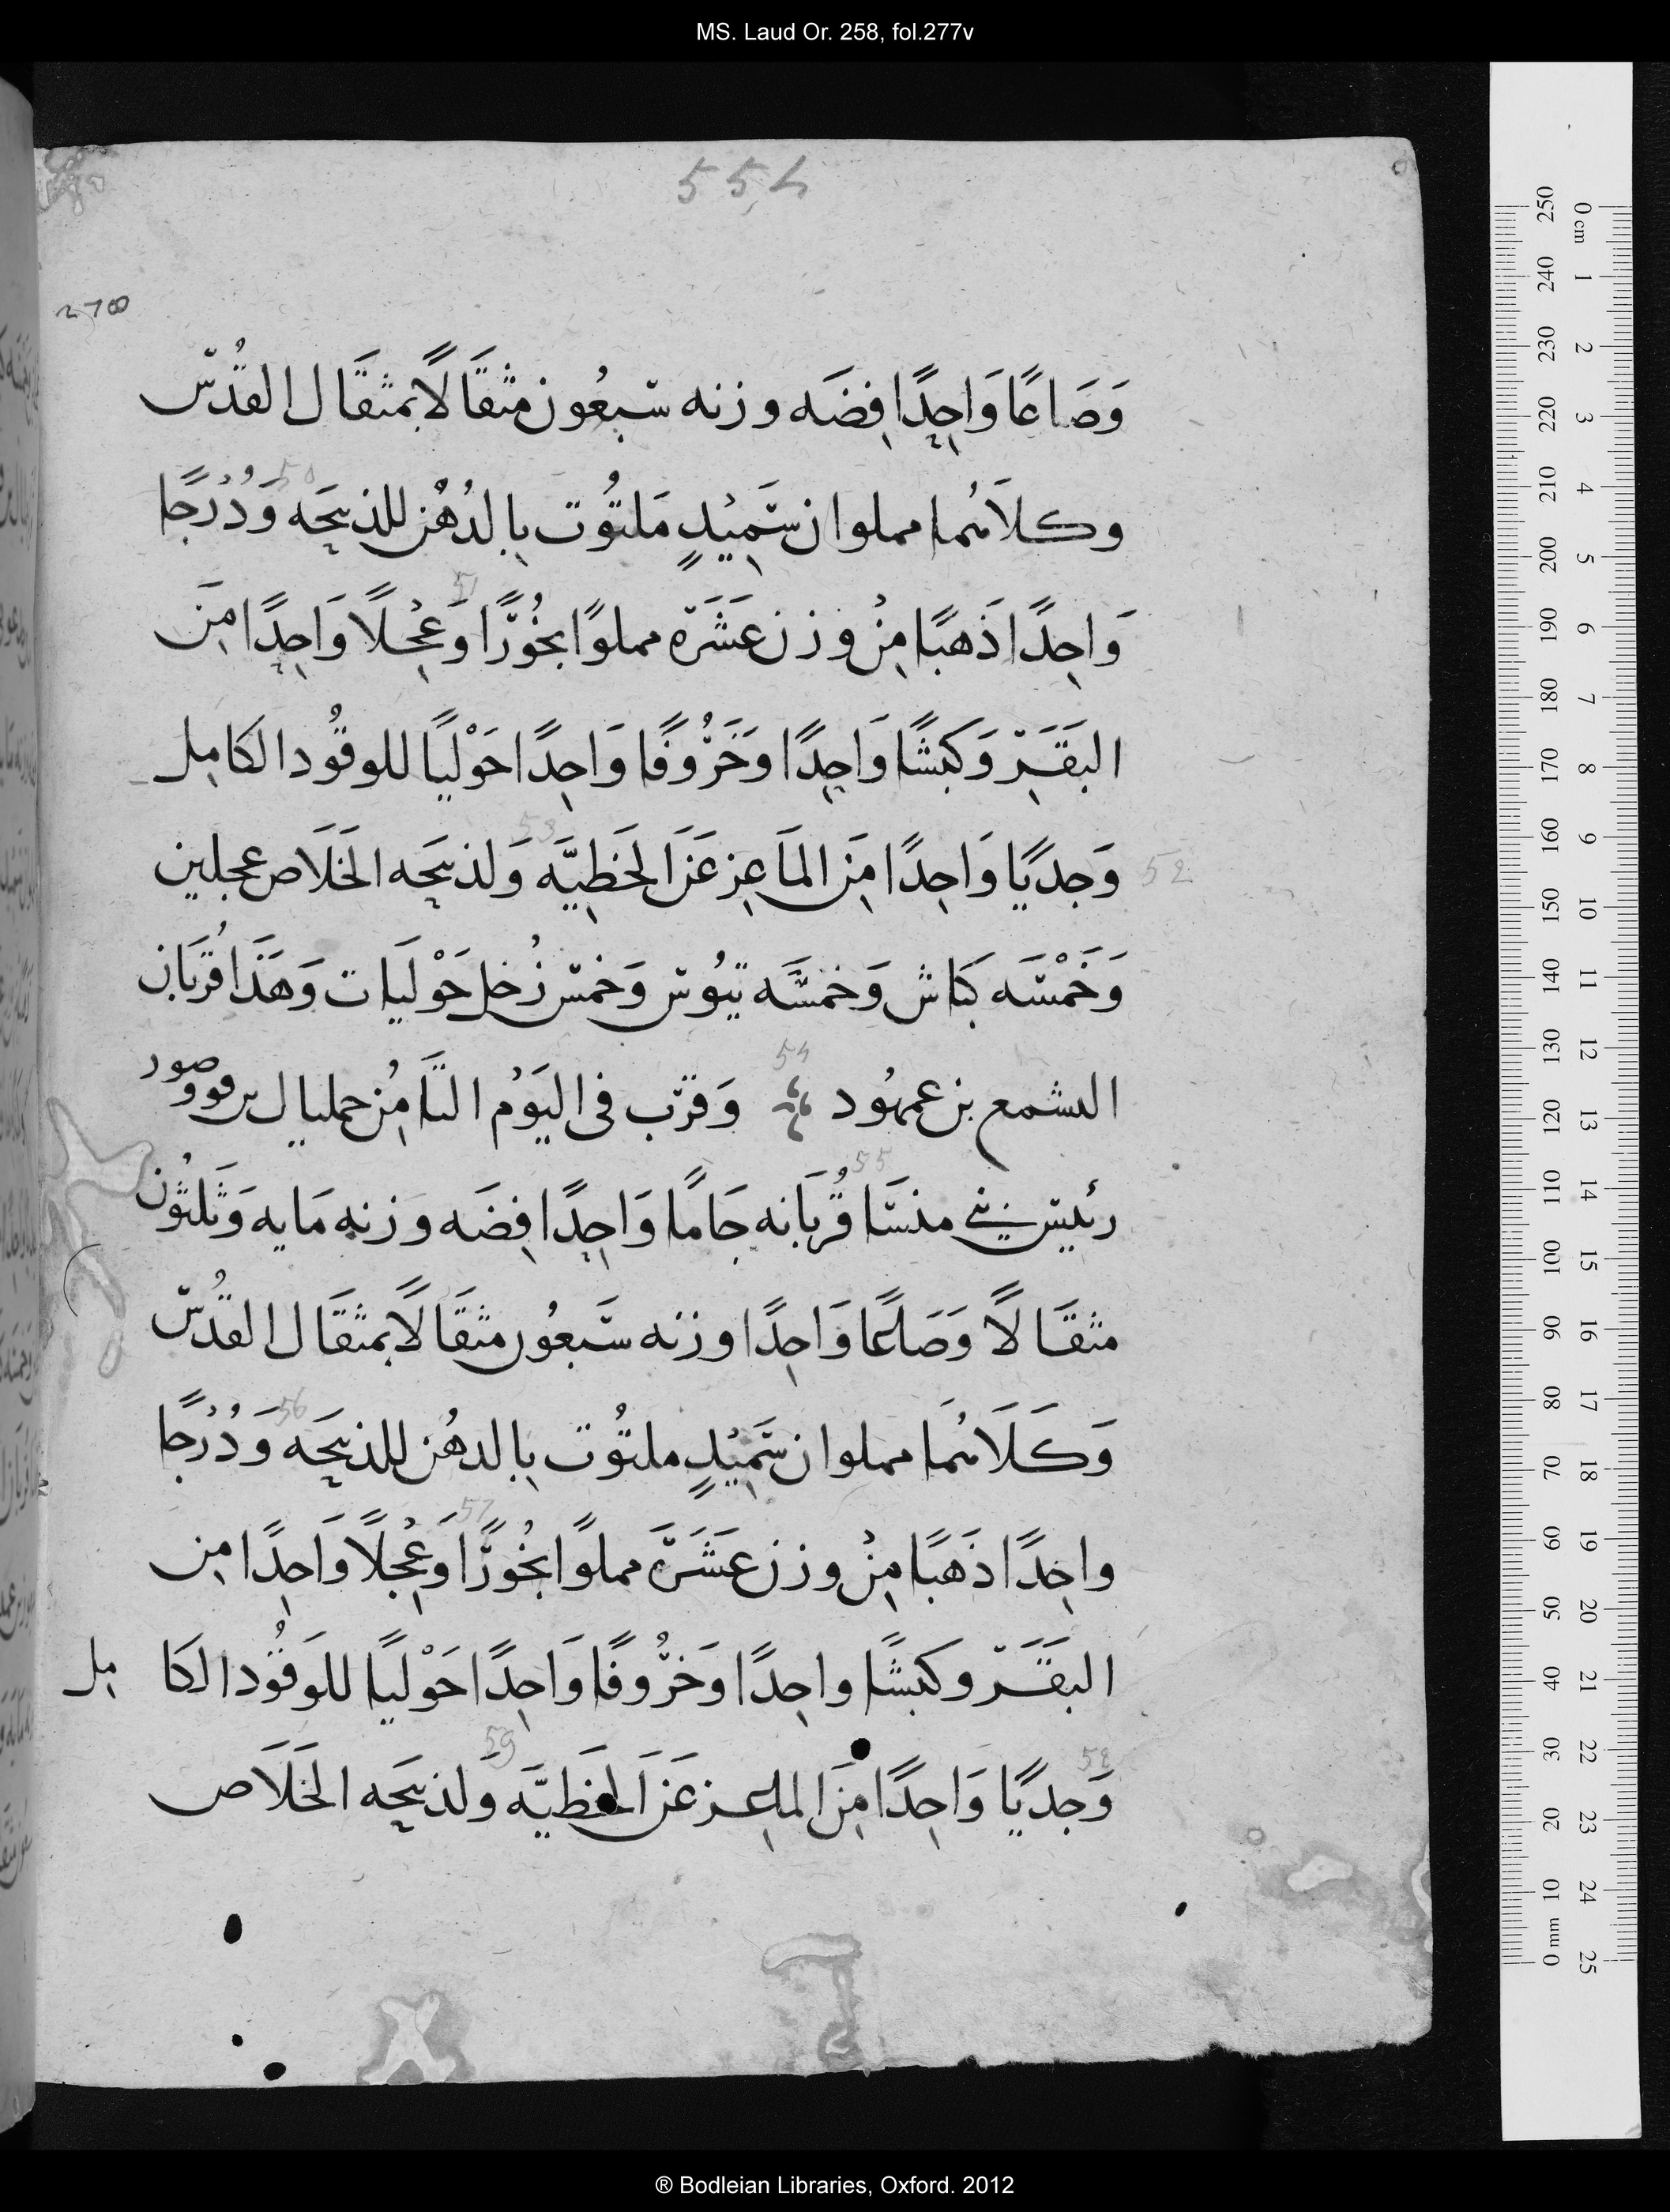 MS. Laud Or. 258, fol.277v
554
278
وَصَاعًا وَاحِدًا فِضَه وزنه سبعُون مثقَالًا بمثقَال القُدس
50
وكلَاهُما مملوان سَمِيْدٍ مَلتُوت بِالدُهْن للذبيحَه وَدُرْجًا
51
وَاحِدًا ذَهبًا مِنْ وزن عَشَرَة مملوًا بخُوْرًا وَعُجِلًا وَاحِدًا مِنَ
البَقَرِ وَكبشًا وَاحِدًا وَخَرُوفًا وَاحِدًا حَوْليًا للوقُود الكامِل
52 53
وَجديًا وَاحِدًا مِنَ المَاعِز عَن الخَطِيَّه وَلذبيحَه الخَلَاص عجلين
وَخَمْسَه كبَاش وَخمسَه تيُوس وَخمس رُخل حَوْليَات وَهَذَا قُربَان
54
اليشمع بن عميهُود وَقرَّب فى اليَوْمُ الثَامِن جمليال بن فوو صور
55
رئيس بني منسَا قُربَانه جَامًا وَاحِدًا فِضَه وزنه مَايه وَثلثُون
مثقَالًا وَصَاعًا وَاحِدًا وزنه سَبعُون مثقَالًا بمثقَال القُدس
56
وَكَلَاهُمَا مملوان سَمِيْدٍ ملتُوت بِالدهُن للذبيحَه وَدُرْجًا
57
واحِدًا ذَهَبًا مِنْ وزن عَشَرَة مملوًا بخُوْرًا وَعُجِلًا وَاحِدًا مِن
البَقَر وكبشًا واحِدًا وَخرُوفًا وَاحِدًا حَوْليًا للوَقُود الكَا مل
58 59
وَجديًا وَاحِدًا مِنَ الماعِز عَن الخَطيَّه وَلذبيحَه الخَلَاص
250 240 230 220 210 200 190 180 170 160 150 140 130 120 110 100 90 80 70 60 50 40 30 20 10 0 mm
0 cm 1 2 3 4 5 6 7 8 9 10 11 12 13 14 15 16 17 18 19 20 21 22 23 24 25
® Bodleian Libraries, Oxford. 2012